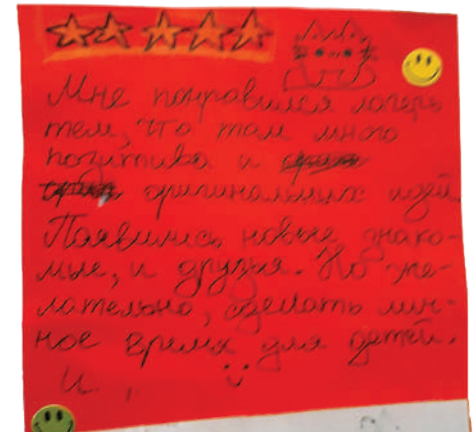 Мне понравился лагерь
тем, что там много
позитива и
оригинальных идей.
Появились новые знако-
мые, и друзья. Но же-
лательно, сделать лич-
ное время для детей.
И ,